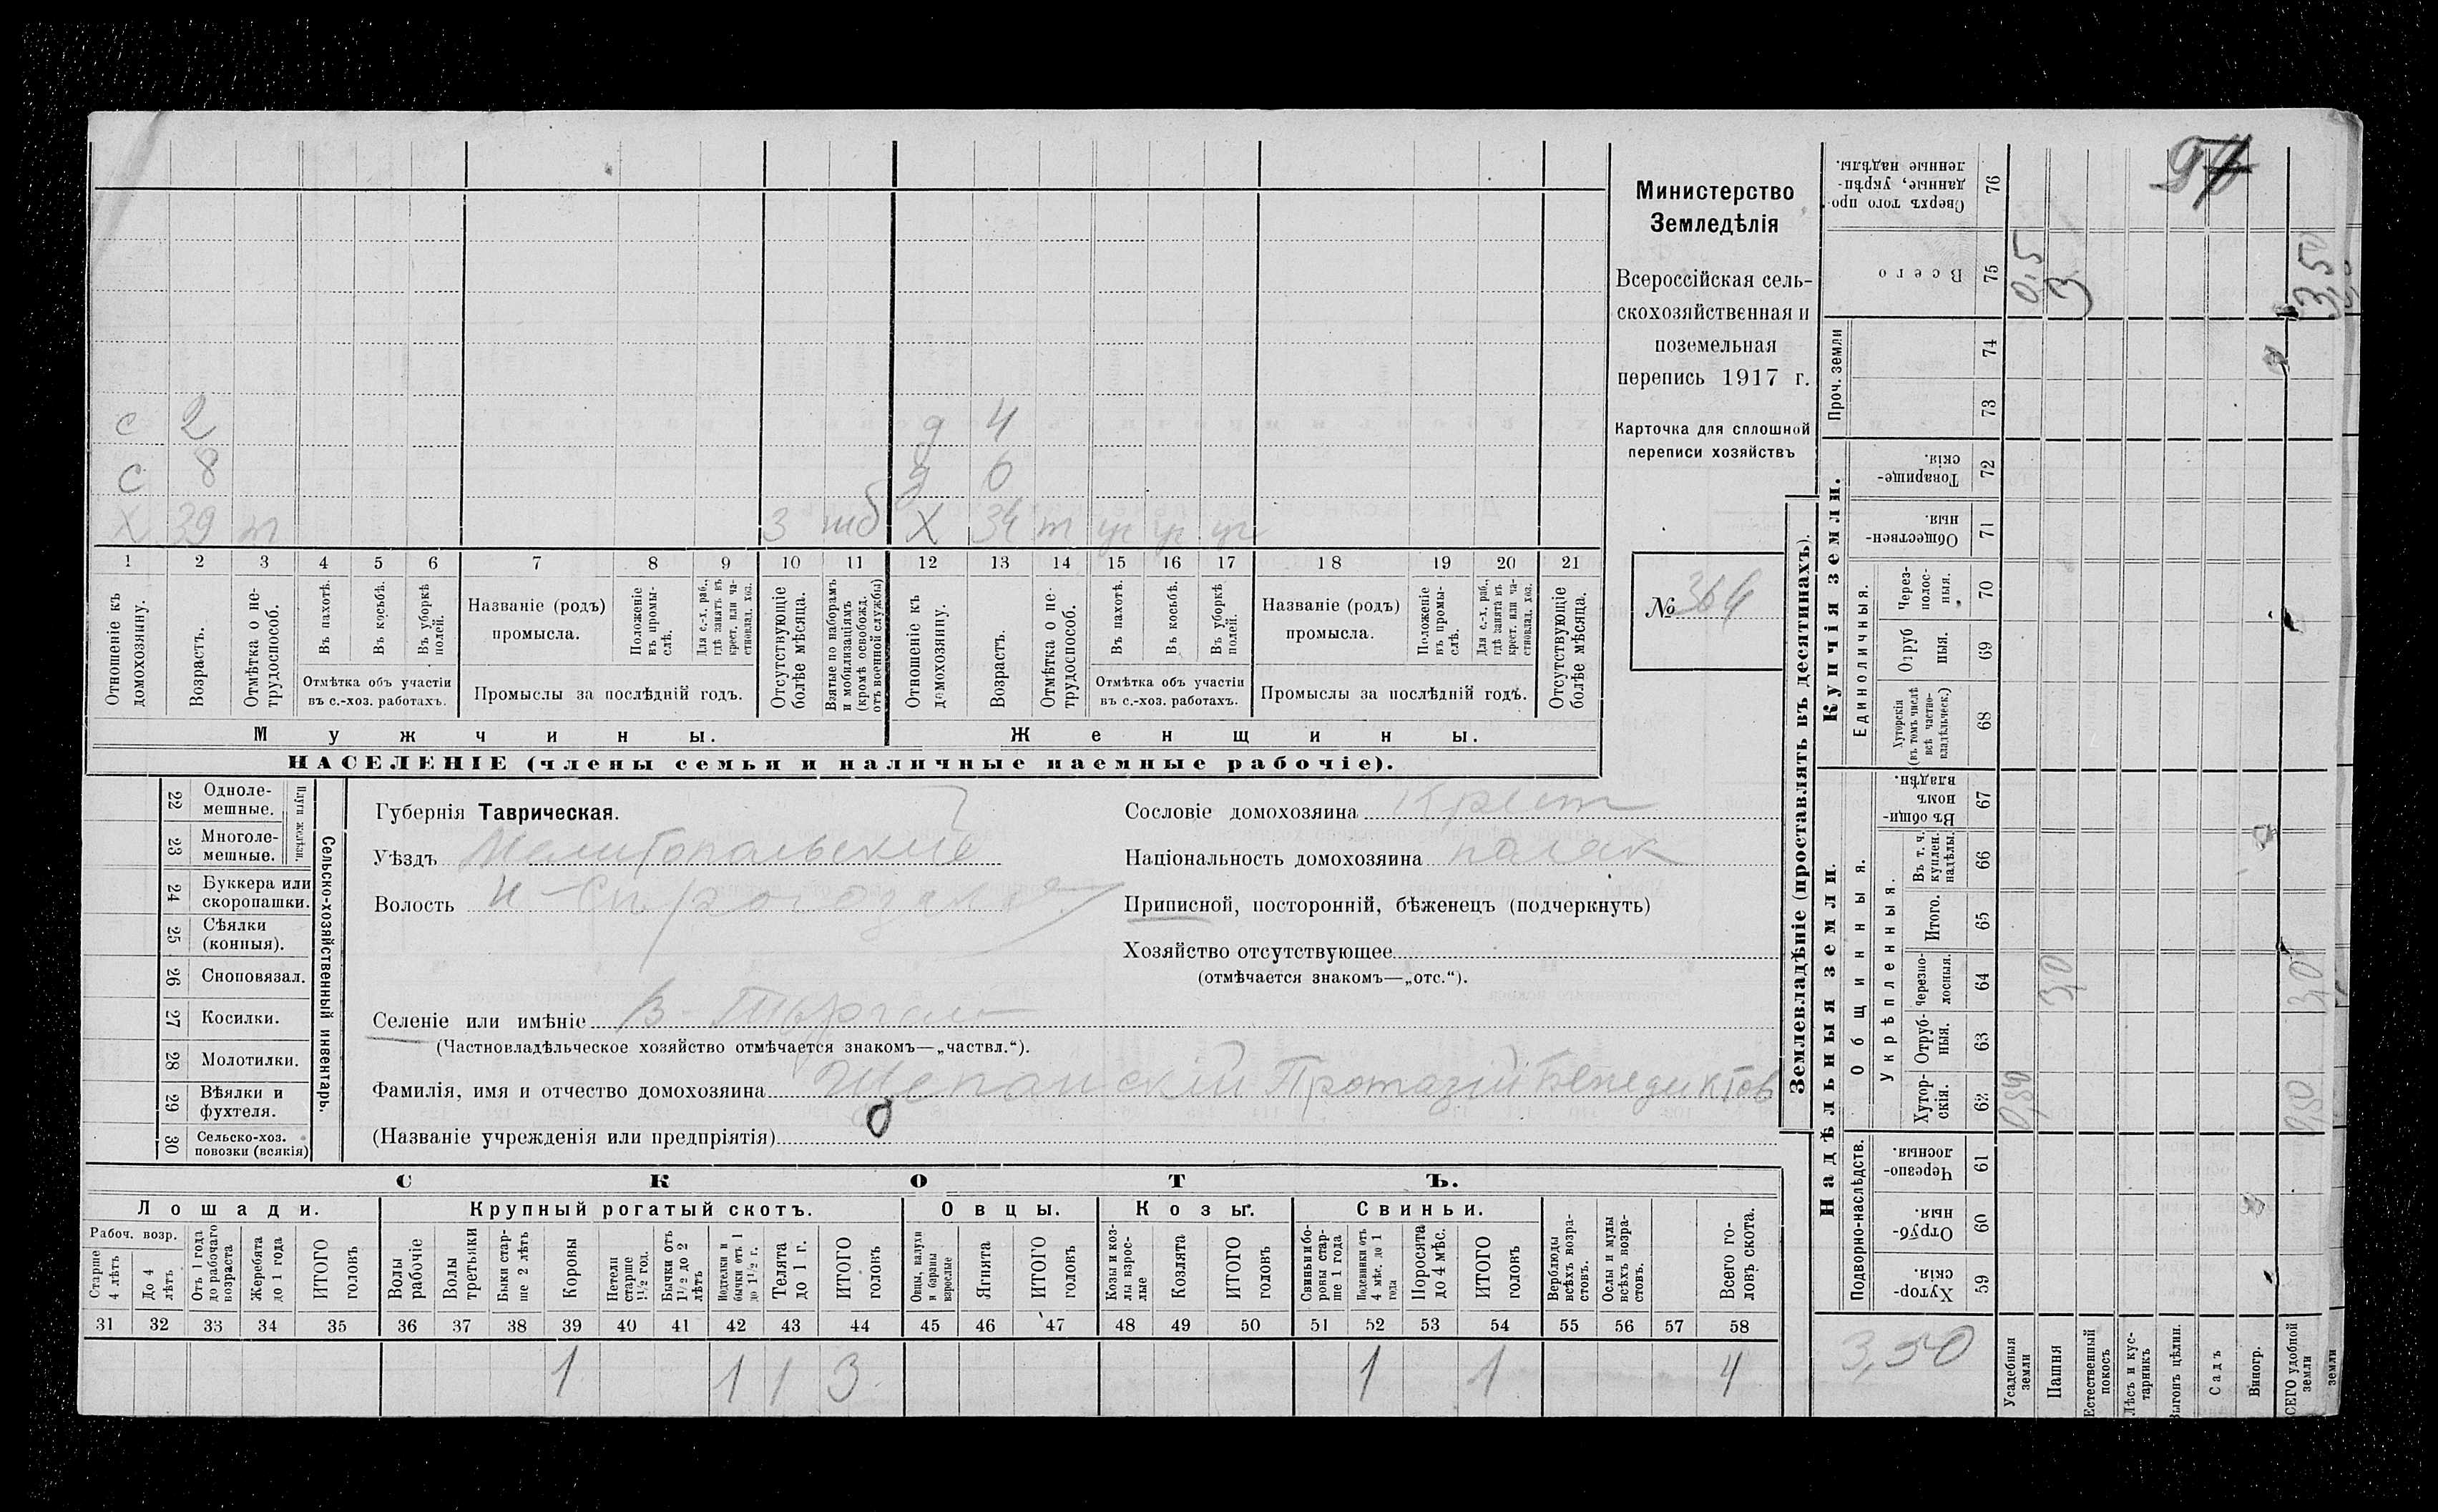 с 2 д 4
с 8 д 6
Х 39 т 3 мб Х 34 т уч уч уч
1 2 3 4 5 6 7 8 9 10 11 12 13 14 15 16 17 18 19 20 21
Отношеніе къ домохозяину.
Возрастъ.
Отмѣтка о не-трудоспособ.
Въ пахотѣ.
Въ косьбѣ.
Въ уборкѣ полей.
Отмѣтка объ участіи
въ с.-хоз. работахъ.
Названіе (родъ)
промысла.
Положеніе въ промы-слѣ.
Для с.-х. раб., гдѣ занятъ въ крест. или ча-стновлад. хоз.
Промыслы за послѣдній годъ.
Отсутствующіе болѣе мѣсяца.
Взятые по наборамъ и мобилизаціямъ (кромѣ освобожд. отъ военной службы)
Отношеніе къ домохозяину.
Возрастъ.
Отмѣтка о не-трудоспособ.
Въ пахотѣ.
Въ косьбѣ.
Въ уборкѣ полей.
Отмѣтка объ участіи
въ с.-хоз. работахъ.
Названіе (родъ)
промысла.
Положеніе въ промы-слѣ.
Для с.-х. раб., гдѣ занята въ крест. или ча-стновлад. хоз.
Промыслы за послѣдній годъ.
Отсутствующіе болѣе мѣсяца.
Мужчины.
Женщины.
НАСЕЛЕНІЕ (члены семьи и наличные наемные рабочіе).
Министерство
Земледѣлія
Всероссійская сель-
скохозяйственная и
поземельная
перепись 1917 г.
Карточка для сплошной
переписи хозяйствъ
№ 364
22 Одноле-мешные.
23 Многоле-мешные.
Плуги желѣзн.
24 Буккера или скоропашки.
25 Сѣялки (конныя).
26 Сноповязал.
27 Косилки.
28 Молотилки.
29 Вѣялки и фухтеля.
30 Сельско-хоз. повозки (всякія)
Сельско-хозяйственный инвентарь.
Губернія Таврическая.
Уѣздъ Мелитопольский
Волость
Селеніе или имѣніе
(Частновладѣльческое хозяйство отмѣчается знакомъ—„частвл.“).
Фамилія, имя и отчество домохозяина Щепанскій Протазій Бенедиктов
(Названіе учрежденія или предпріятія)
Сословіе домохозяина Крест
Національность домохозяина паляк
Приписной, посторонній, бѣженецъ (подчеркнуть)
Хозяйство отсутствующее
(отмѣчается знакомъ—„отс.“).
СКОТЪ.
Лошади.
Крупный рогатый скотъ.
Овцы.
Козы.
Свиньи.
Рабоч. возр.
Старше 4 лѣтъ
До 4 лѣтъ
Отъ 1 года до рабочаго возраста
Жеребята до 1 года
ИТОГО головъ
Волы рабочіе
Волы третьяки
Быки стар-ше 2 лѣтъ
Коровы
Нетели старше 1½ год.
Бычки отъ 1½ до 2 лѣтъ
Подтелки и бычки отъ 1 до 1½ г.
Телята до 1 г.
ИТОГО головъ
Овцы, валухи и бараны взрослые
Ягнята
ИТОГО головъ
Козы и коз-лы взрос-лые
Козлята
ИТОГО головъ
Свиньи и бо-ровы стар-ше 1 года
Подсвинки отъ 4 мѣс. до 1 года
Поросята до 4 мѣс.
ИТОГО головъ
Верблюды всѣхъ возра-стовъ.
Ослы и мулы всѣхъ возра-стовъ.
Всего го-ловъ скота.
31 32 33 34 35 36 37 38 39 40 41 42 43 44 45 46 47 48 49 50 51 52 53 54 55 56 57 58
1 1 1 3 1 1 4
Землевладѣніе (проставлять въ десятинахъ).
Купчія земли.
Надѣльныя земли.
Сверхъ того про-данные, укрѣп-ленные надѣлы. 76
Всего 75 0,5 3 3,50
Проч. земли 74 73
Товарище-скія. 72
Обществен-ныя. 71
Единоличныя.
Через-полос-ныя. 70
Отруб ныя. 69
Хуторскія (въ томъ числѣ всѣ частно-владѣльческ.) 68
Общинныя.
Въ общи-номъ владѣн. 67
Укрѣпленныя.
Въ т. ч. куплен. надѣлы. 66
Итого. 65
Черезпо-лосныя. 64 3,0 3,0
Отруб-ныя. 63
Хутор-скія. 62 0,50 0,50
Подворно-наслѣдств.
Черезпо-лосныя. 61
Отруб-ныя. 60
Хутор-скія. 59
3,50
Усадебныя земли
Пашня
Естественный покосъ
Лѣсъ и кус-тарникъ
Выгонъ цѣлин.
Садъ
Виногр.
СЕГО удобной земли
земли